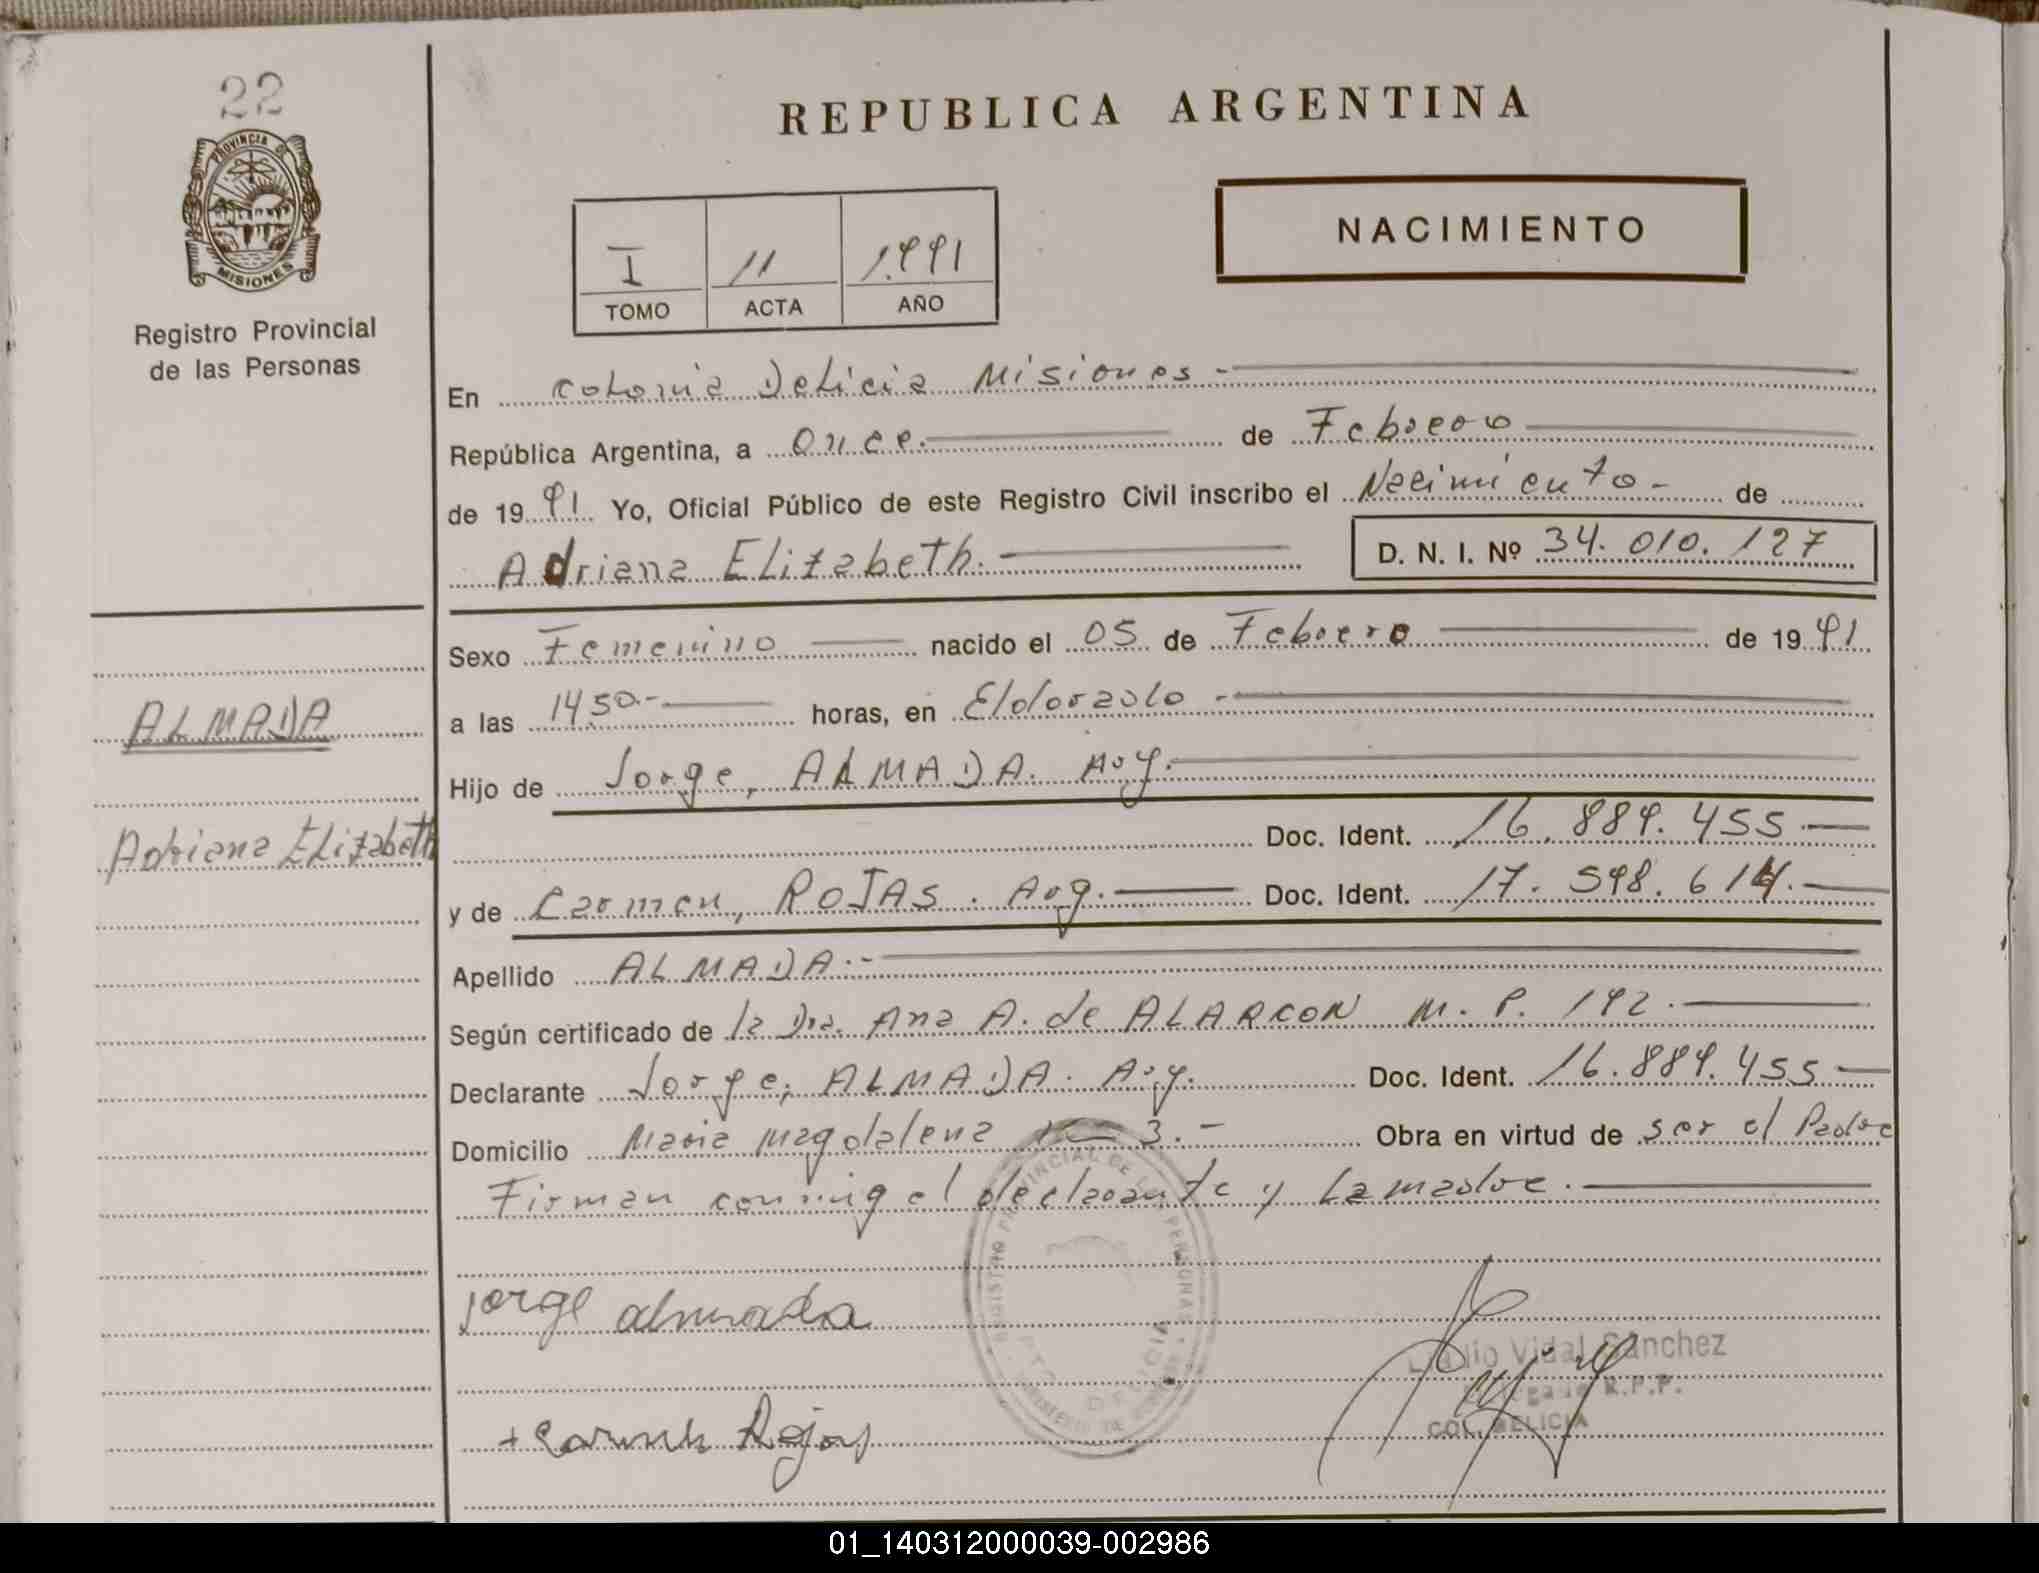 22
PROVINCIA DE
MISIONES
Registro Provincial
de las Personas
REPUBLICA ARGENTINA
NACIMIENTO
I 11 1.991
TOMO ACTA AÑO
En Colonia Delicia Misiones -
República Argentina, a Once. de Febrero
de 19 91 Yo, Oficial Público de este Registro Civil inscribo el Necimiento - de
Adriana Elizabeth. D. N. I. Nº 34.010.127
Sexo Femenino nacido el 05 de Febrero de 19 91
a las 14,50.- horas, en Eldorado -
Hijo de Jorge, ALMADA. Arg.
Doc. Ident. 16.889.455.
y de Carmen, ROJAS. Arg. Doc. Ident. 17.598.614.
Apellido ALMADA.-
Según certificado de la Dra. Ana A. de ALARCON M.P. 192.
Declarante Jorge, ALMADA. Arg. Doc. Ident. 16.889.455
Domicilio Maria Magdalena 3.- Obra en virtud de ser el Padre
Firman conmigo el declarante y La madre.
ALMADA
Adriana Elizabeth
REGISTRO PROVINCIAL DE LAS PERSONAS
DELICIA
Jorge almada
Vidal Sanchez
R.P.P.
COL. DELICIA
+ Carmen Rojas
01_140312000039-002986